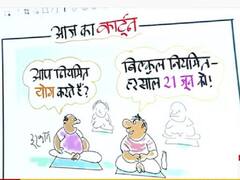 आज का कार्टून
आप नियमित
योग करते हैं?
बिल्कुल नियमित-
हर साल 21 जून को!